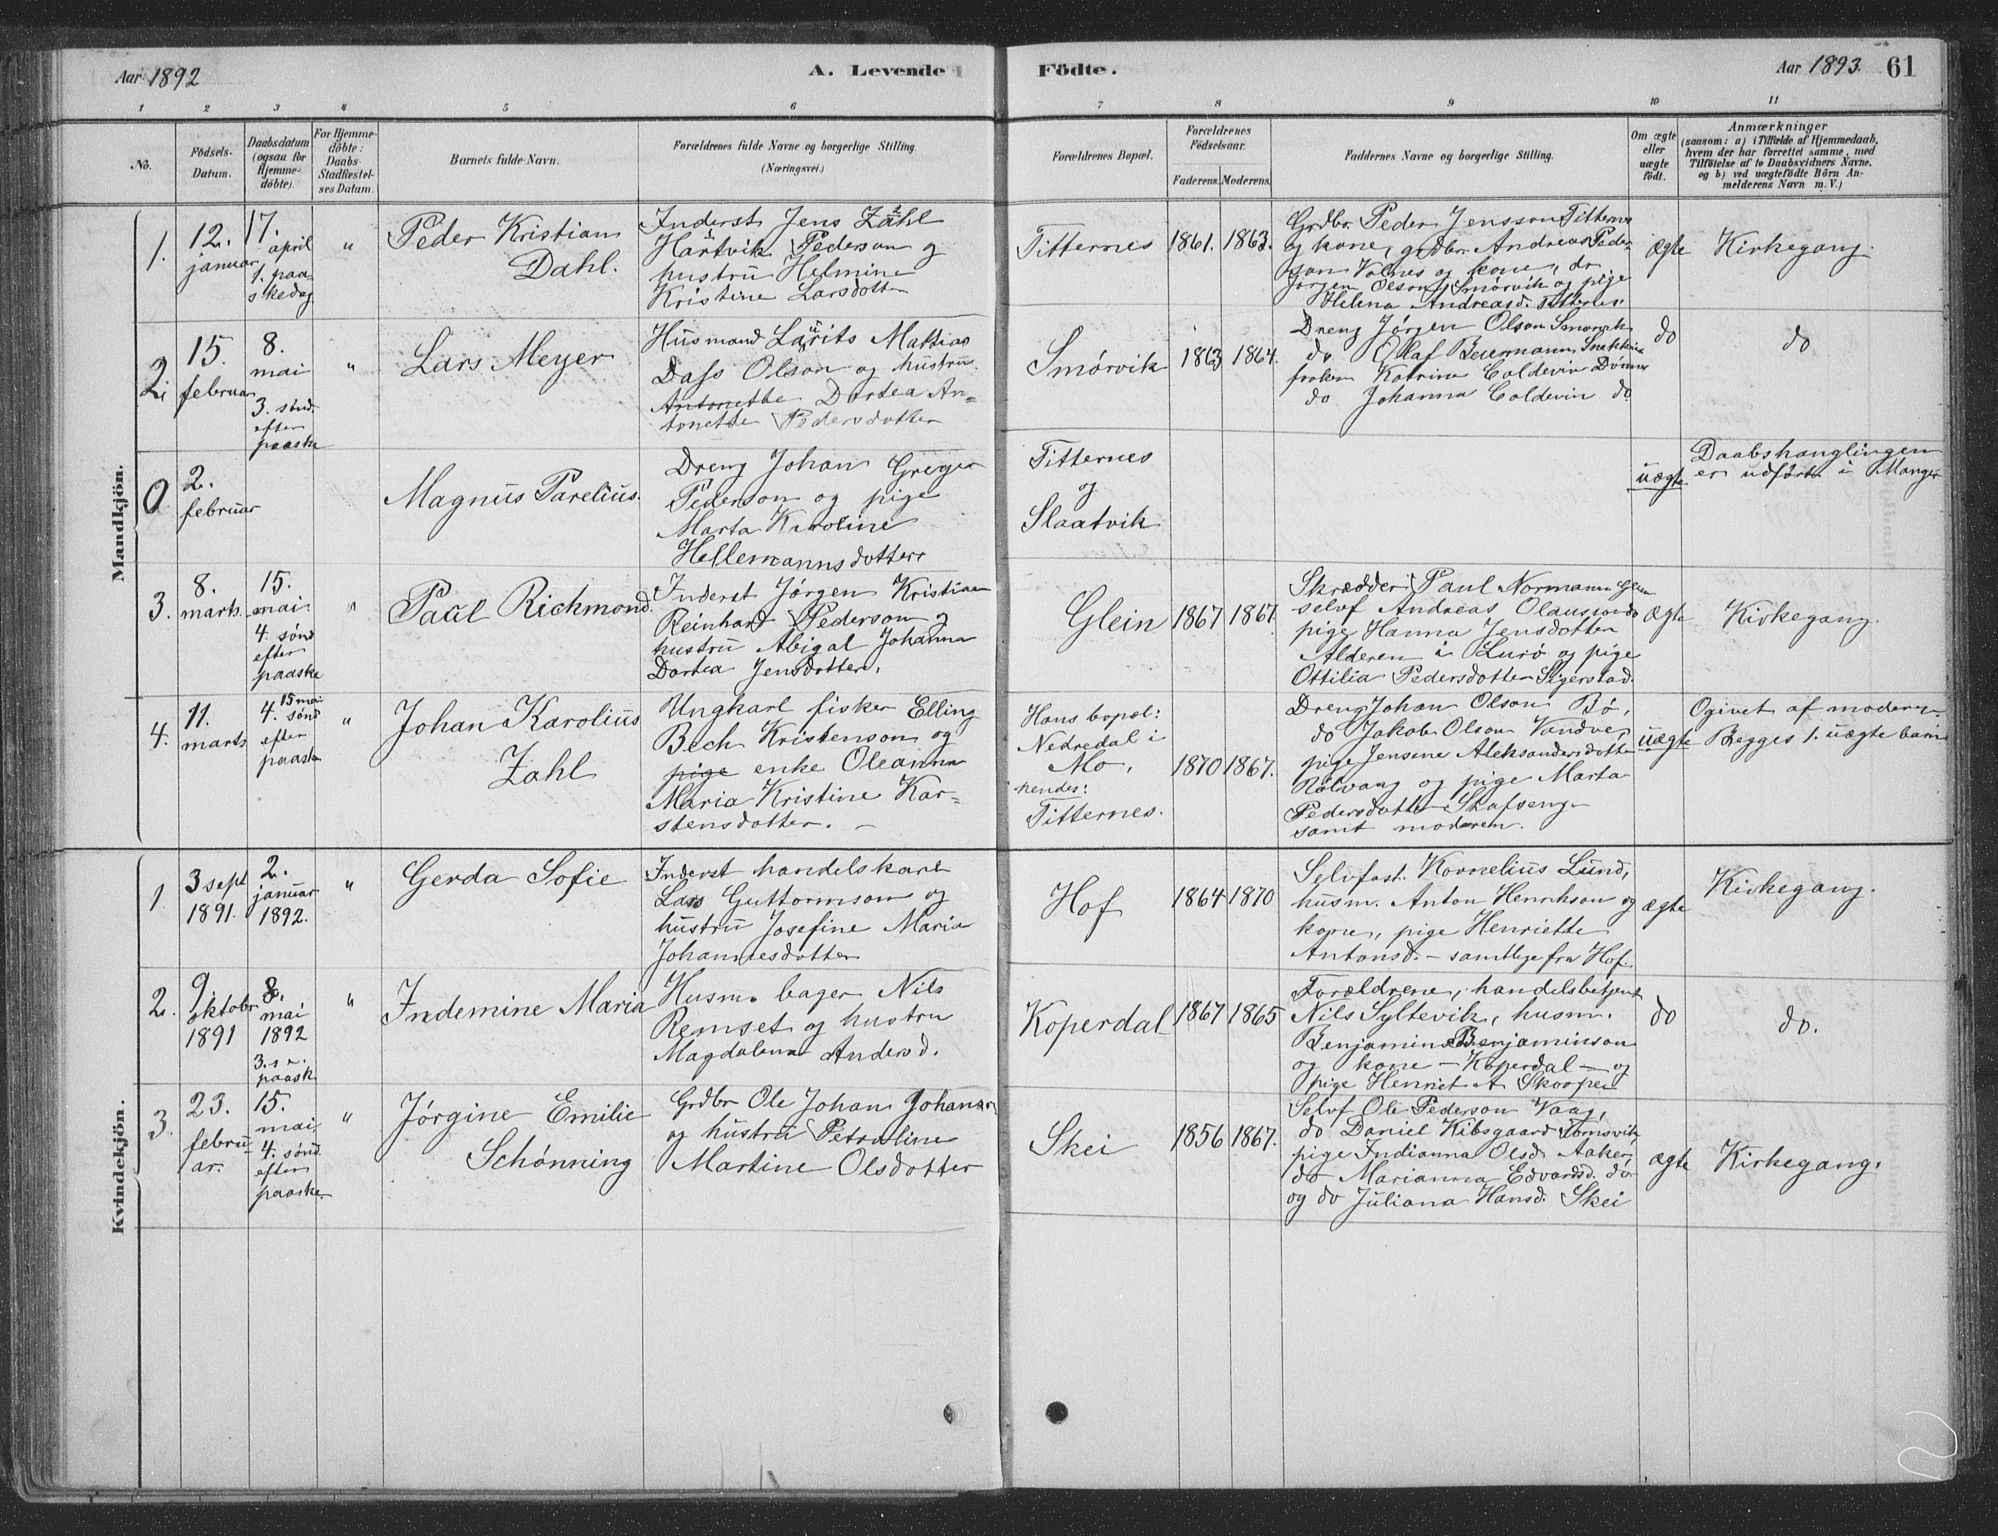 Aar 1892
A. Levende
Födte.
Aar 1893.
61
1 2 3 4 5 6 7 8 9 10 11
No.
Födsels-
Datum.
Daabsdatum
(ogsaa for
Hjemme-
döbte).
For Hjemme-
döbte:
Daabs-
Stadfæstel-
ses Datum.
Barnets fulde Navn.
Forældrenes fulde Navne og borgerlige Stilling.
(Næringsvei.)
Forældrenes Bopæl.
Forældrenes
Födselsaar.
Faderens. Moderens.
Faddernes Navne og borgerlige Stilling.
Om ægte
eller
uægte
födt.
Anmærkninger
(saasom: a) i Tilfælde af Hjemmedaab,
hvem der har forrettet samme, med
Tilföielse af to Daabsvidners Navne,
og b) ved uægtefödte Börn An-
melderens Navn m. V.)
Mandkjön.
1.
12.
januar
17.
april
1. paa-
skedag
"
Peder Kristian
Dahl.
Inderst Jens Zahl
Hartvik Pederson og
hustru Helmine
Kristine Larsdotter
Titternes
1861. 1863.
Grdbr. Peder Jensson Titternes
og kone, grdbr. Andreas Peder-
son Valnes og kone, dr
Jørgen Olson Smørvik og pige
Helena Andreasd. Titternes.
ægte
Kirkegang.
2.
15.
februar
8.
mai
3. sønd.
efter
paaske
"
Lars Meyer
Husmand Laurits Mattias
Dass Olson og hustru
Antonette Dortea An-
tonette Pedersdotter
Smørvik
1863 1864.
Dreng Jørgen Olson Smørvik
do Olaf
frøken Katrine Coldevin Dønnes
do Johanna Coldevin do
do
do
0
2.
februar
Magnus Parelius.
Dreng Johan Greger
Pederson og pige
Marta Karoline
Hellemannsdotter
Titternes
og
Slaatvik
uægte
Daabshanglingen
er udført i Manger
3.
8.
marts.
15.
mai
4. sønd
efter
paaske
"
Paul Richmond.
Inderst Jørgen Kristian
Reinhard Pederson og
hustru Abigal Johanna
Dortea Jensdotter.
Glein
1867 1867.
Skrædder Paul Normann Glein
selvf Andreas Olausson do
pige Hanna Jensdotter
Alderen i Lurø og pige
Ottilia Pedersdotter Sigerstad.
ægte
Kirkegang.
4.
11.
marts
15 mai
4. sønd
efter
paaske
"
Johan Karolius
Zahl
Ungkarl fisker Elling
Bech Kristenson og
pige enke Oleanna
Maria Kristine Kar-
stensdotter. –
Hans bopæl:
Nedredal i
Mo,
hendes:
Titternes.
1870 1867.
Dreng Johan Olson Bø,
do Jakob Olson Vandve,
pige Jensine Aleksandersdotter
Rølvaag og pige Marta
Pedersdotter Skafseng
samt moderen.
uægte
Ogivet af moderen.
Begges 1. uægte barn
Kvindekjön.
1
3 sept
1891.
2.
januar
1892.
"
Gerda Sofie
Inderst handelskarl
Lars Guttormson og
hustru Josefine Maria
Johannesdotter
Hof
1864 1870
Selvfost. Kornelius Lund,
husm. Anton Henrikson og
kone, pige Henriette
Antonsd. – samtlige fra Hof.
ægte
Kirkegang.
2.
9
oktober
1891
8.
mai
1892
3. s e.
paask
"
Indemine Maria
Husm. bager Nils
Remset og hustru
Magdalena Andersd.
Koperdal
1867 1865
Forældrene, handelsbetjent
Nils Syltevik, husm.
Benjamin Benjaminson
og kone – Koperdal – og
pige Henriet A Skorpen
do
do.
3.
23.
febru-
ar.
15.
mai
4. sønd.
efter
paaske.
"
Jørgine Emilie
Schønning
Grdbr Ole Johan Johanson
og hustru Petroline
Martine Olsdotter
Skei
1856 1867.
Selvf Ole Pederson Vaag,
do Daniel Kibsgaard
pige Indianna Olsd Aaker,
do Marianna Edvardsd. do
og do Juliana Hansd. Skei
ægte
Kirkegang.